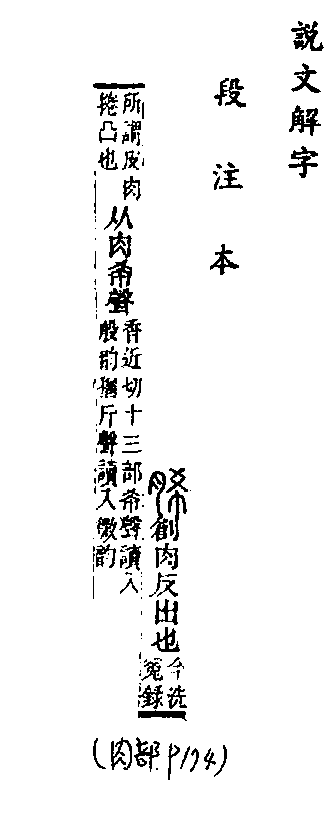 説文解字
段注本
脪創肉反出也今洗
冤錄
所謂皮肉
捲凸也
从肉希聲
香近切十三部希聲讀入
殷韵猶斤聲讀入微韵
(肉部 P174)